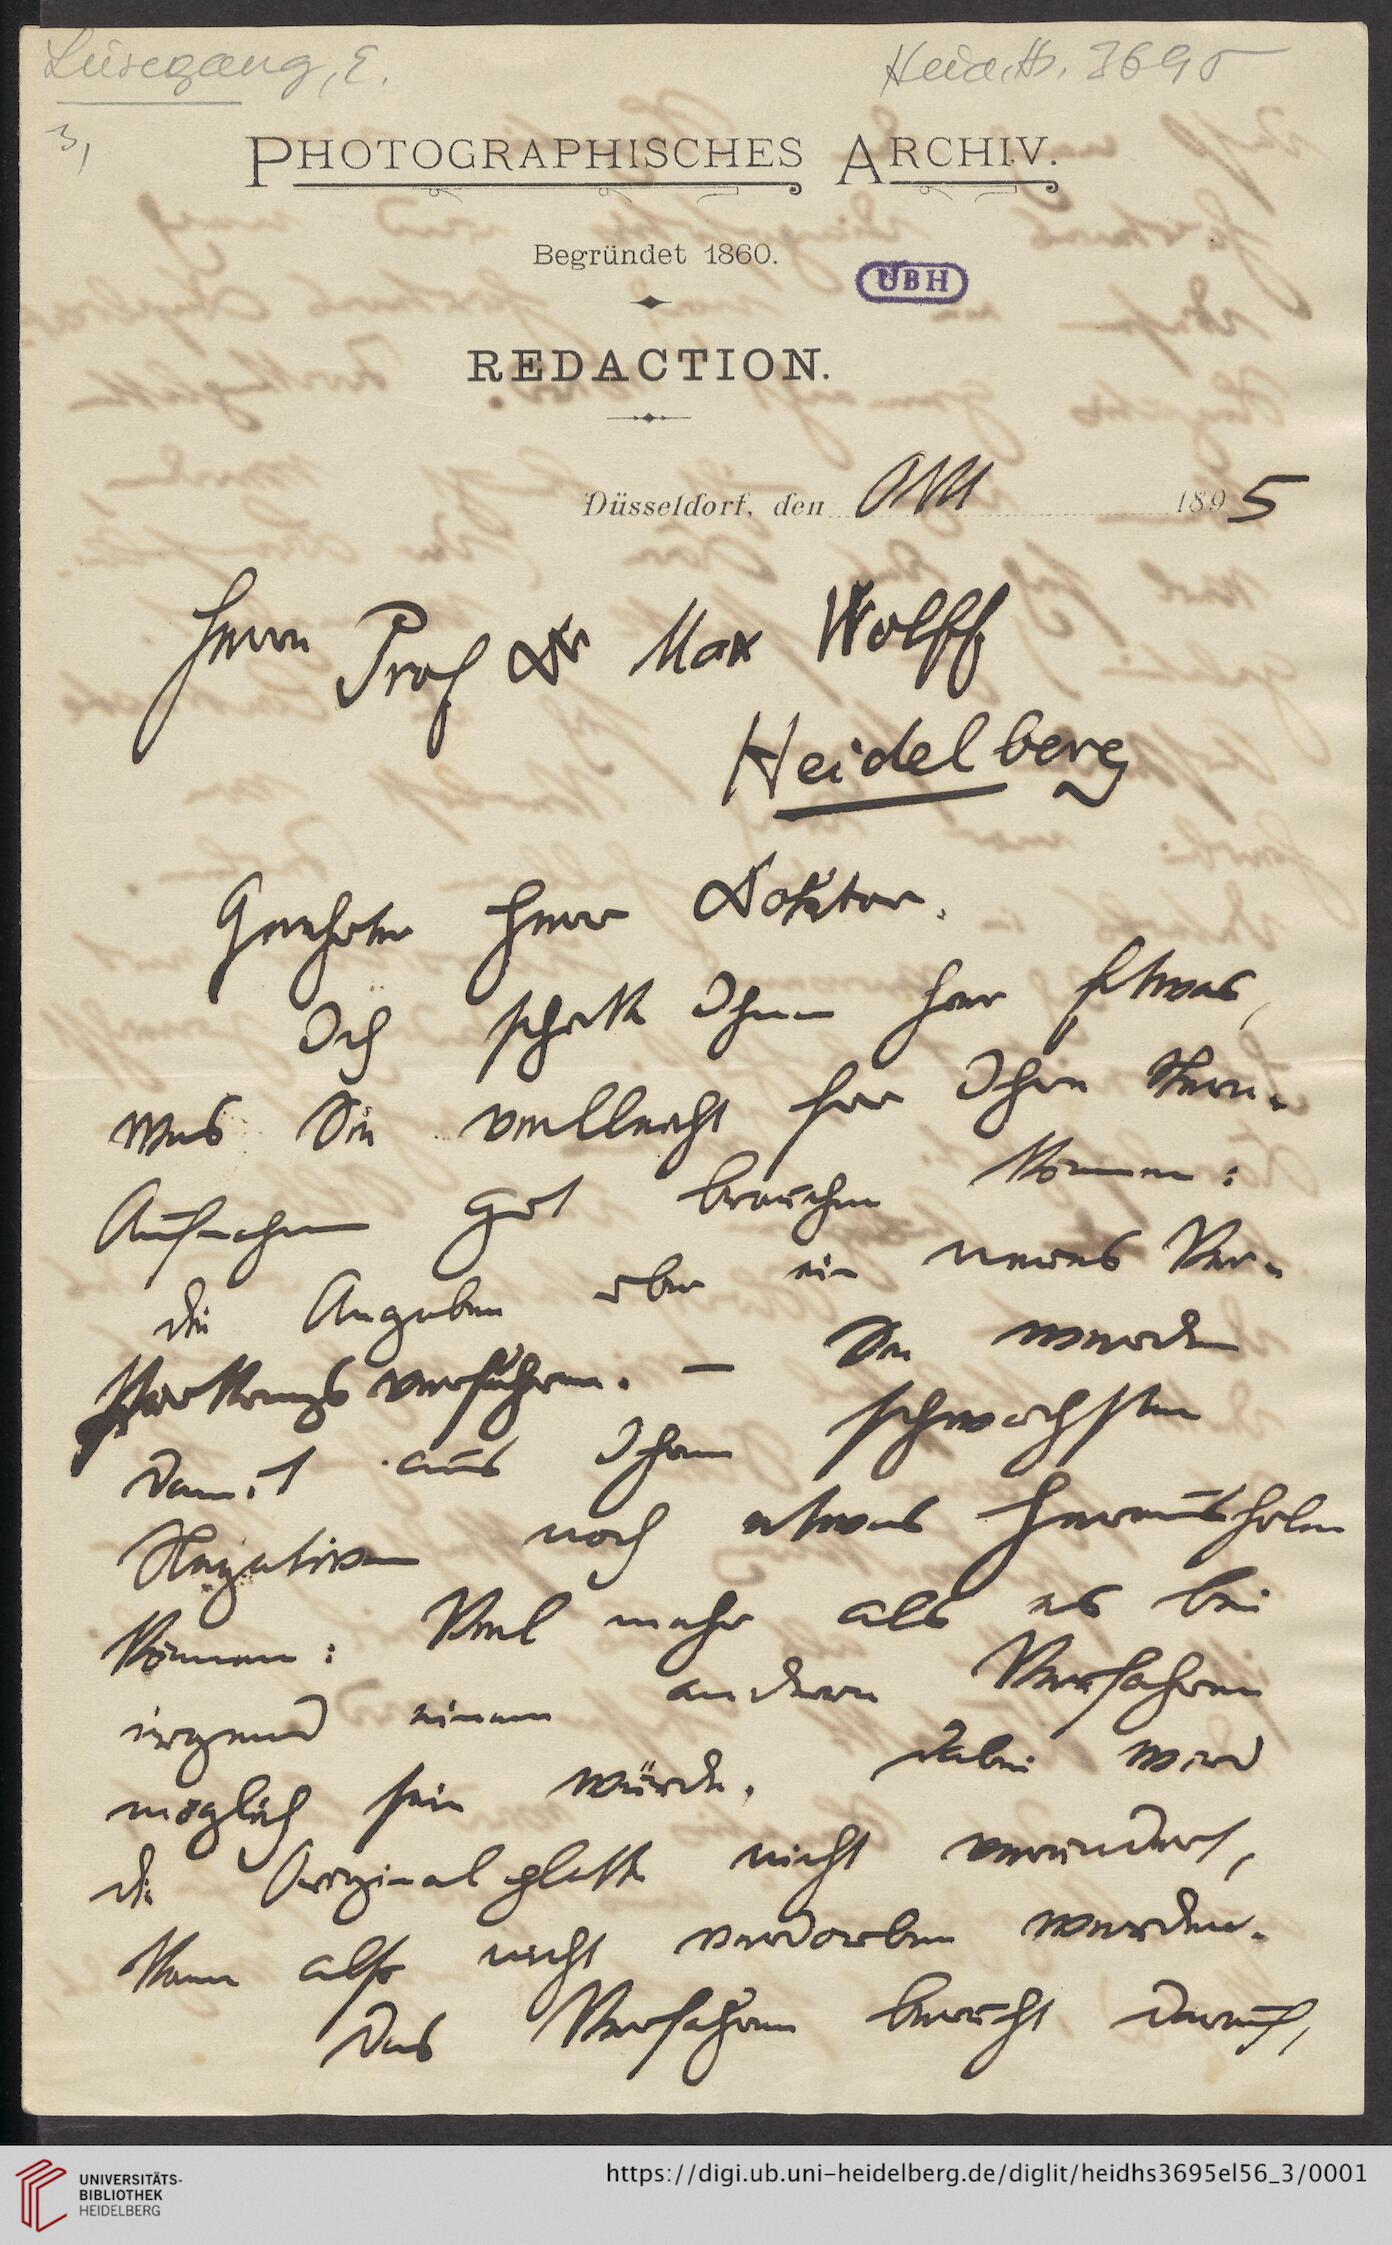 Liesegang, E.
Heid. Hs. 3695
3,
PHOTOGRAPHISCHES ARCHIV.
Begründet 1860.
UBH
REDACTION.
Düsseldorf, den 1895
Herrn Prof Dr Max Wolff
Heidelberg
Geehrter Herr Doktor.
Ich schicke Ihnen hier Etwas,
was Sie vielleicht für Ihre Stern-
Aufnahmen gut brauchen können:
die Angaben über ein neues Ver-
stärkungsverfahren. — Sie werden
damit aus Ihren schwächsten
Negativen noch etwas herausholen
können: Viel mehr als es bei
irgend einem andern Verfahren
möglich sein würde. Dabei wird
die Originalplatte nicht verändert,
kann also nicht verdorben werden.
Das Verfahren beruht darauf,
UNIVERSITÄTS-
BIBLIOTHEK
HEIDELBERG
https://digi.ub.uni-heidelberg.de/diglit/heidhs3695el56_3/0001